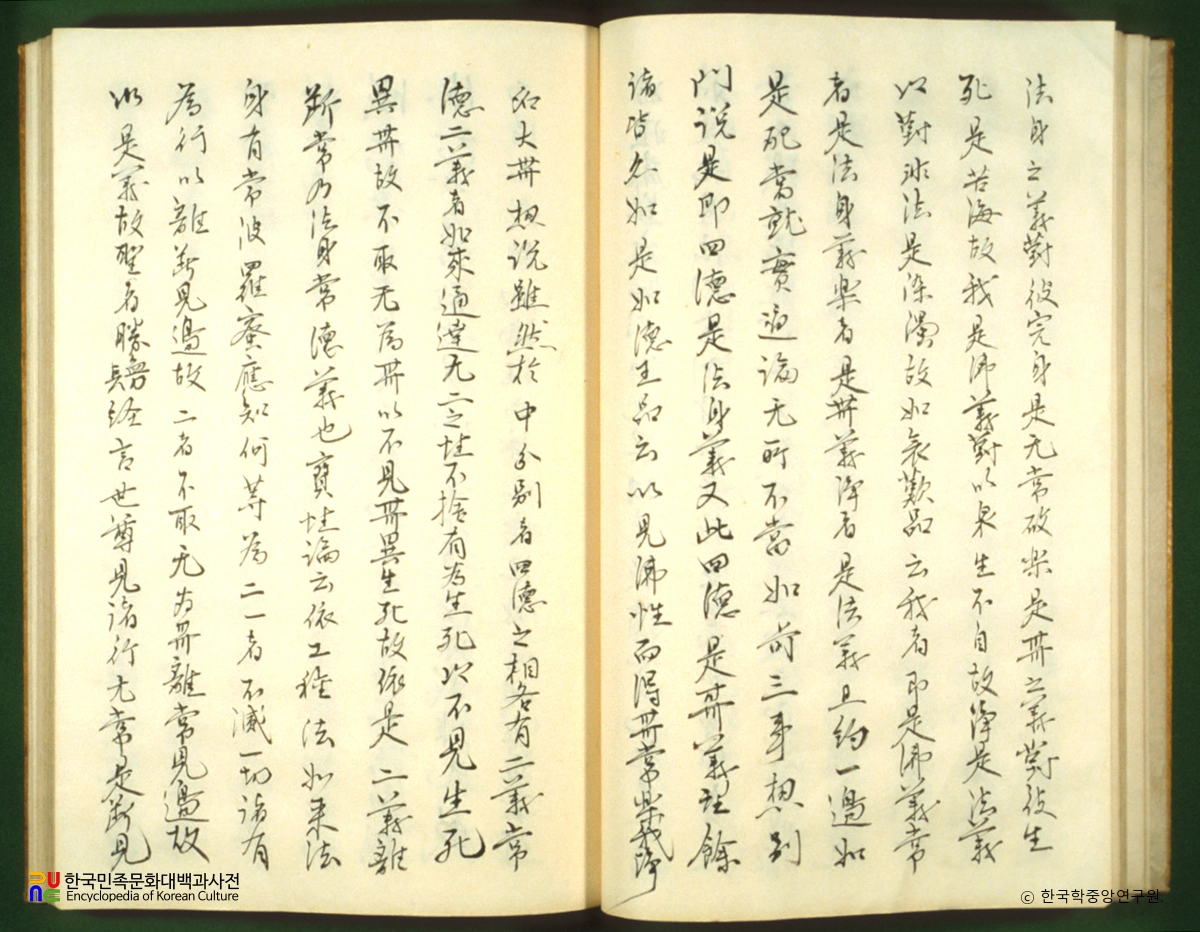 法身之義對彼色身是无常故樂是卌之義對彼生
死是苦海故我是佛義對以衆生不自故淨是法義
以對非法是染濁故如哀歎品云我者即是佛義常
者是法身義樂者是卌義淨者是法義且約一邊如
是配當就實通論无所不當如前三事惣別
門說是即四德是法身義又此四德是卌義諸餘
諸皆亦如是如德王品云以見佛性而得卌常樂我淨
名大卌惣說雖然於中分別者四德之相各有二義常
德二義者如來通達无二之性不捨有為生死以不見生死
異卌故不取无為卌以不見卌異生死故依是二義離
斷常乃法身常德義也寶性論云依二種法如來法
身有常波羅蜜應知何等為二一者不滅一切諸有
為行以離斷見邊故二者不取无為卌離常見邊故
以是義故聖者勝鬘経言世尊見諸行无常是斷見
한국민족문화대백과사전
Encyclopedia of Korean Culture
ⓒ 한국학중앙연구원